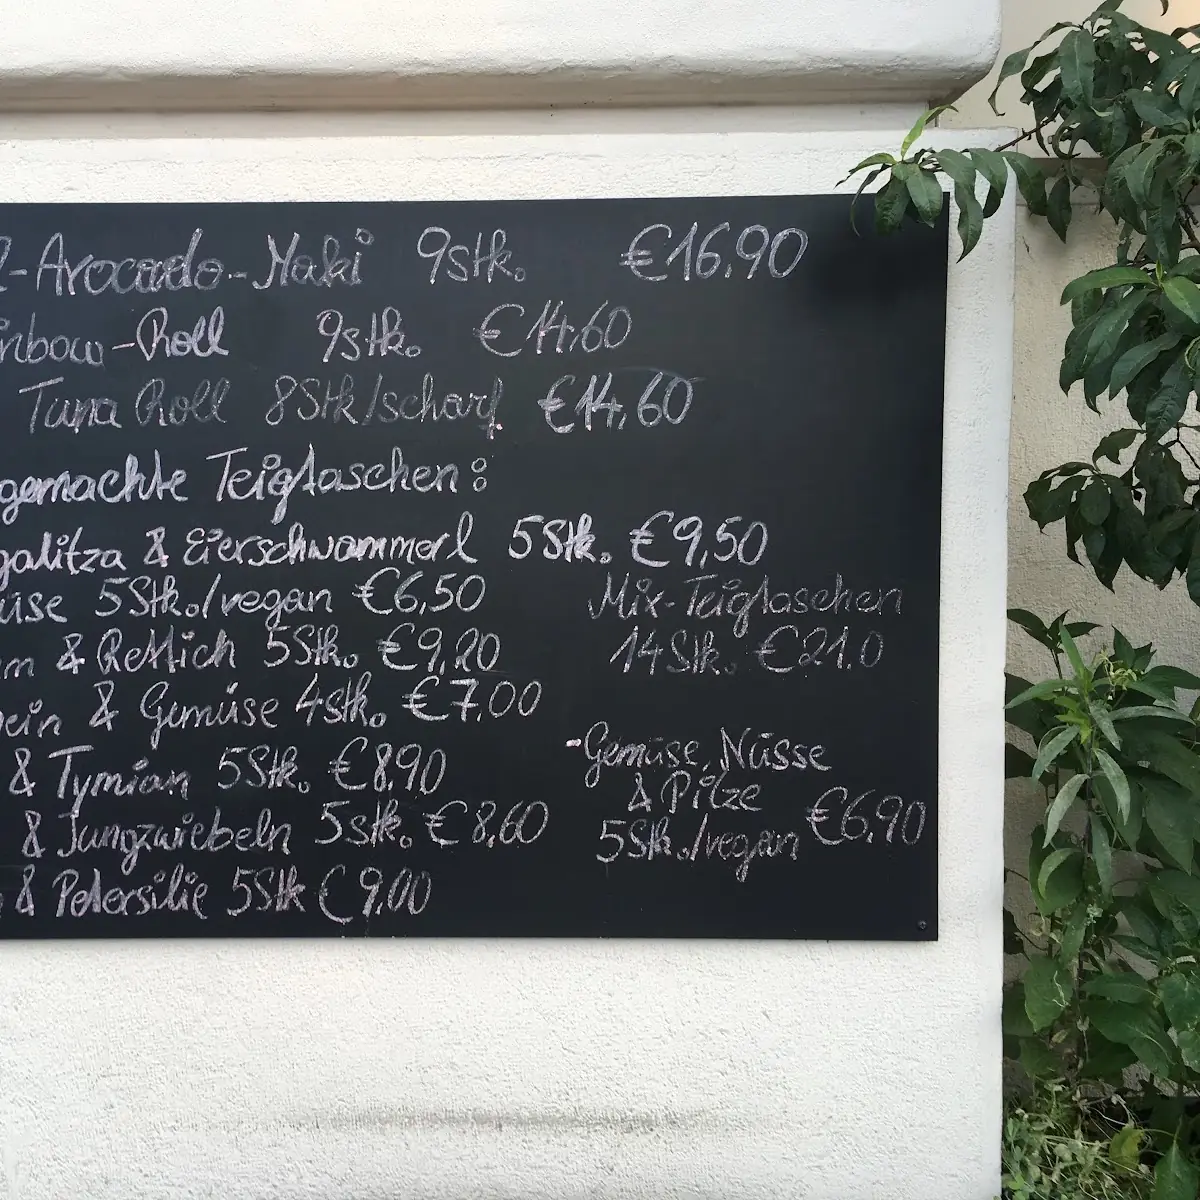 -Avocado-Maki 9stk. €16,90
inbow-Roll 9stk. €14,60
Tuna Roll 8Stk/scharf €14,60
gemachte Teigtaschen:
galitza & Eierschwammerl 5Stk. €9,50
üse 5Stk./vegan €6,50
m & Rettich 5Stk. €9,20
ein & Gemüse 4stk. €7,00
& Tymian 5Stk. €8,90
& Jungzwiebeln 5stk. €8,60
& Petersilie 5Stk €9,00
Mix-Teigtaschen
14Stk. €21.0
-Gemüse, Nüsse
& Pilze
5Stk./vegan €6,90